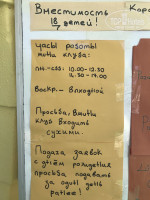 Вместимость
18 детей!
Кара
часы работы
мини клуба:
пн.-сб.: 10.00-12.30
16.30-17.00
Воскр.- Выходной
Просьба, в мини
клуб входить
сухими.
Подача заявок
с днём рождения
просьба подавать
за один день
ранее!